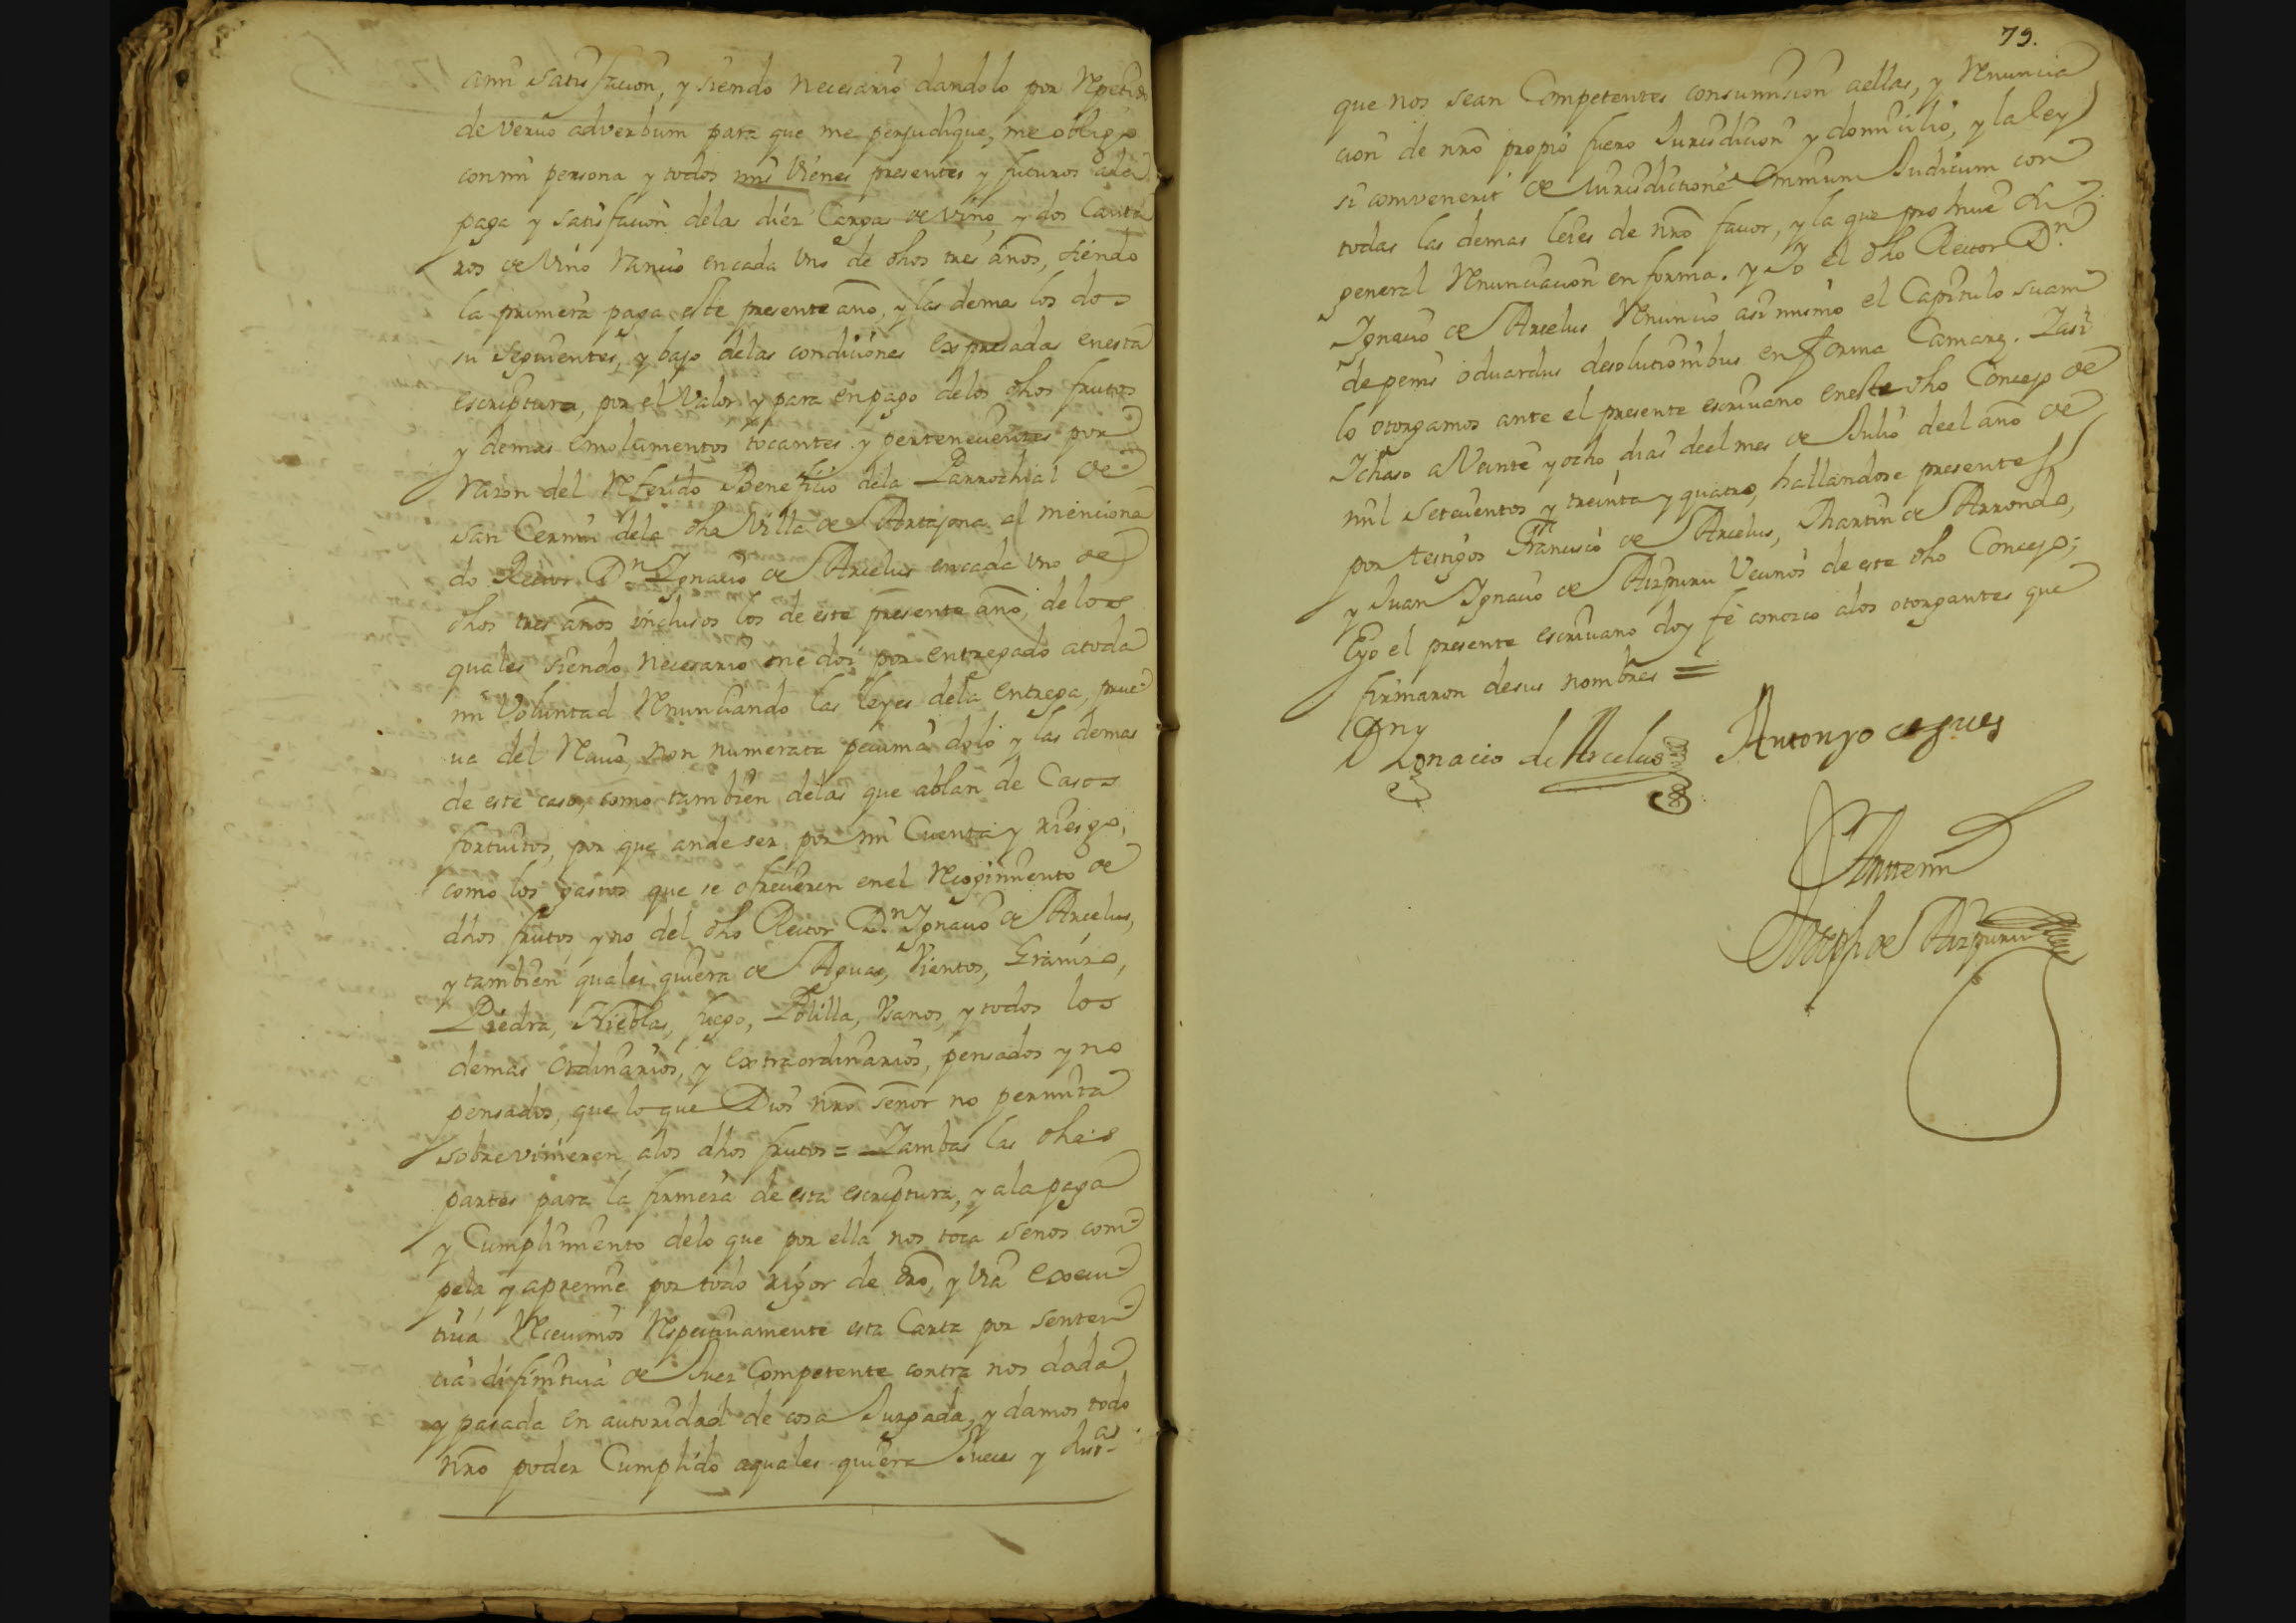 ami satisfacion, y siendo necesario dandolo por Repetido
de verbo adverbum para que me perjudique, me obligo
con mi persona y todos mis Vienes presentes y futuros ala
paga y satisfacion delas diez Cargas de Vino, y dos Canta
ros de Vino Rancio encada Uno de dhos tres años, siendo
la primera paga este presente año, y las demas los dos
su seguientes, y bajo delas condiciones expresadas enesta
escriptura, por el Valor y para en pago delos dhos frutos
y demas emolumentos tocantes y pertenecientes por
Razon del Referido Beneficio dela Parrochial de
san Cernin dela dha Villa de Artajona al menciona
do Rector Dn Ignacio de Arcelus encada Uno de
dhos tres años inclusos los de este presente año, de los
quales siendo necesario me doi por entregado atoda
mi Voluntad Renunciando las leyes dela entrega, prue
ua del Reciuo, non numerata pecunia dolo y las demas
de este caso, como tambien delas que ablan de Casos
fortuitos, por que ande ser por mi Cuenta y riesgo,
como los gastos que se ofrecieren enel Recogimiento de
dhos frutos, y no del dho Rector Dn Ignacio de Arcelus,
y tambien quales quiera de Aguas, Vientos, Granizo,
Piedra, Nieblas, fuego, Polilla, Usanos, y todos los
demas ordinarios, y extraordinarios, pensados y no
pensados, que lo que Dios nro señor no permita
sobrevinieren alos dhos frutos = Y ambas las dhas
partes para la firmeza de esta escriptura, y ala paga
y Cumplimiento delo que por ella nos toca senos com
pela y apremie por todo rigor de dro, y via execu
tiua Reciuimos Respectiuamente esta Carta por senten
cia difinitiua de Juez Competente contra nos dada
y pasada en autoridad de cosa Juzgada, y damos todo
nro poder Cumplido aquales quiera Jueces y Justas
79.
que nos sean Competentes consumision aellas, y Renuncia
cion de nro propio fuero Jurisdicion y domicilio, y la ley
si convenerit de Iurisdictione Omnium Judicum con
todas las demas leies de nro fauor, y la que prohiue la
general Renunciacion en forma. y Yo el dho Rector Dn
Ignacio de Arcelus Renuncio asi mismo el Capitulo suam
de penis oduardus desolutionibus en forma Camare. Y asi
lo otorgamos ante el presente escriuano eneste dho Concejo de
Ichaso a Veinte y ocho dias deel mes de Julio deel año de
mil setecientos y treinta y quatro, hallandose presentes
por testigos Francisco de Arcelus, Martin de Arrondo,
y Juan Ignacio de Aizpuru Vecinos de este dho Concejo;
Eyo el presente escriuano doy fe conozco alos otorgantes que
firmaron desus nombres =
Dn Ygnacio de Arcelus
Antonyo
Antte mi
Joseph de Aizpuru